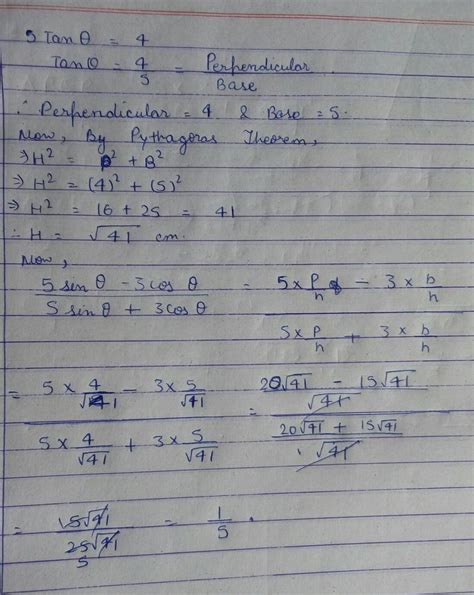 5 Tan θ = 4
Tan θ = 4/5 = Perpendicular/Base
∴ Perpendicular = 4 & Base = 5.
Now, By Pythagoras Theorem,
⇒ H² = P² + B²
⇒ H² = (4)² + (5)²
⇒ H² = 16 + 25 = 41
∴ H = √41 cm.
Now,
(5 sin θ - 3 cos θ)/(5 sin θ + 3 cos θ) = (5 × P/h - 3 × b/h)/(5 × P/h + 3 × b/h)
= (5 × 4/√41 - 3 × 5/√41)/(5 × 4/√41 + 3 × 5/√41) = ((20√41 - 15√41)/√41)/((20√41 + 15√41)/√41)
= 5√41/25√41 = 1/5 .
5